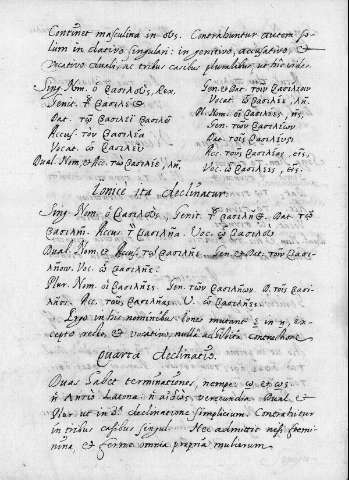 Continet masculina in οῦς. Contrahuntur autem so-
lum in dativo singulari: in genitivo, accusativo, et
vocativo duali, ac tribus casibus pluralibus, ut hic vides
Sing. Nom. ὁ βασιλεὺς, Rex. Gen. et Dat. τοῖν βασιλέοιν
Genit. βασιλέ Vocat. ὦ βασιλέε, λῆ.
Dat. τῷ βασιλέϊ βασιλεῖ Pl. Nom. οἱ βασιλέες, εῖς.
Accus. τὸν βασιλέα Gen. τῶν βασιλέων
Vocat. ὦ βασιλεῦ Dat. τοῖς βασιλεῦσι
Dual. Nom. et Acc. τὼ βασιλέε, λῆ. Acc. τοὺς βασιλέας, εῖς.
Voc. ὦ βασιλέες, εῖς.
Ionice ita declinatur.
Sing. Nom. ὁ βασιλεὺς, Genit. βασιλῆ Dat. τῷ
βασιλῆϊ. Accus. βασιλῆα. Voc. ὦ βασιλεῦ
Dual. Nom. et Accus. τὼ βασιλῆε. Gen. et Dat. τοῖν βασι-
λήοιν. Voc. ὦ βασιλῆε.
Plur. Nom. οἱ βασιλῆες. Gen. τῶν βασιλήων. D. τοῖς βασι-
Acc. τοὺς βασιλῆας. V. ὦ βασιλῆες.
in his nominibus Iones mutant ε in η, ex-
cepto recto, et vocativo, nulla adhibita contractione
Quarta declinatio.
Duas habet terminationes, nempe ω et ως
Latona: ἡ αἰδὼς, verecundia. Dual. et
Plur. ut in declinatione simplicium. Contrahitur
in tribus casibus singul. Nec admittit nisi foemi-
nina, et ferme omnia propria mulierum